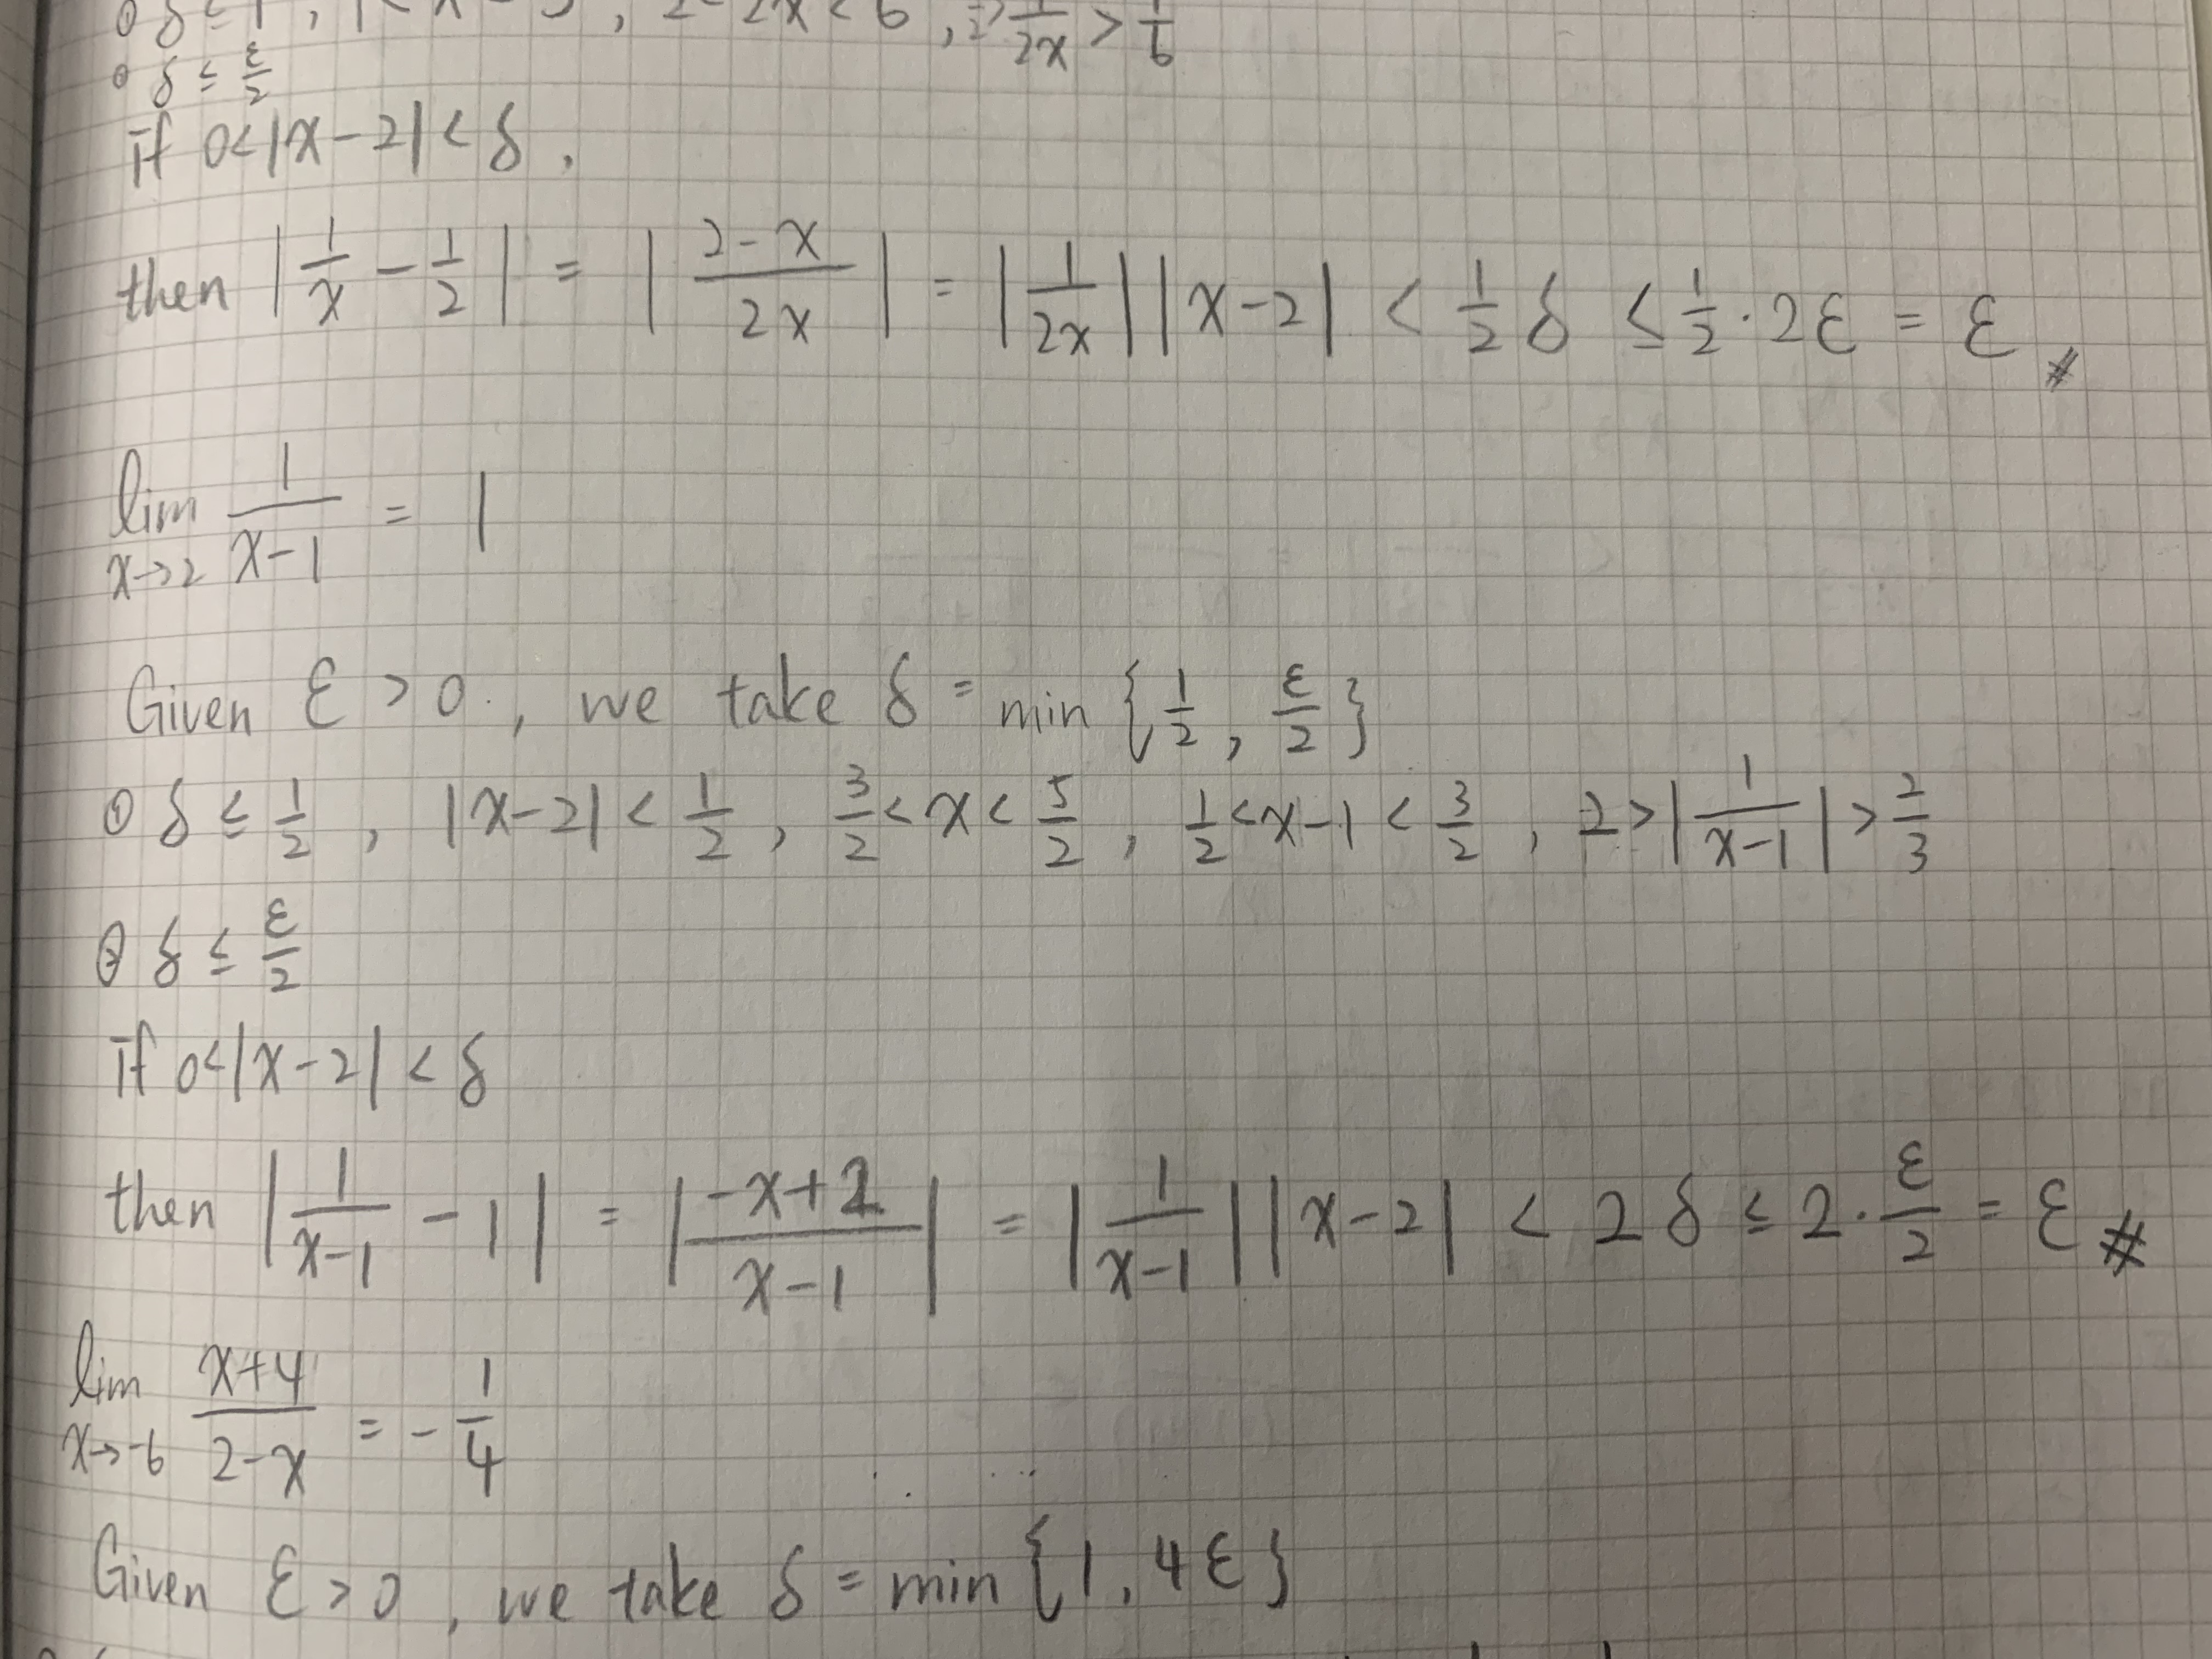 ① δ ≤ 1, 1 < x < 3, 2 < 2x < 6, 1/2 > 1/2x > 1/6
② δ ≤ ε/2
If 0<|x-2|<δ.
then |1/x - 1/2| = |2-x/2x| = |1/2x||x-2| < 1/2 δ ≤ 1/2 · 2ε = ε #
lim x→2 1/x-1 = 1
Given ε > 0, we take δ = min {1/2, ε/2}
① δ ≤ 1/2, |x-2| < 1/2, 3/2 < x < 5/2, 1/2 < x-1 < 3/2, 2 > |1/x-1| > 2/3
② δ ≤ ε/2
If 0<|x-2|<δ
then |1/x-1 - 1| = |-x+2/x-1| = |1/x-1||x-2| < 2δ ≤ 2·ε/2 = ε #
lim x→-6 x+4/2-x = -1/4
Given ε > 0, we take δ = min {1, 4ε}